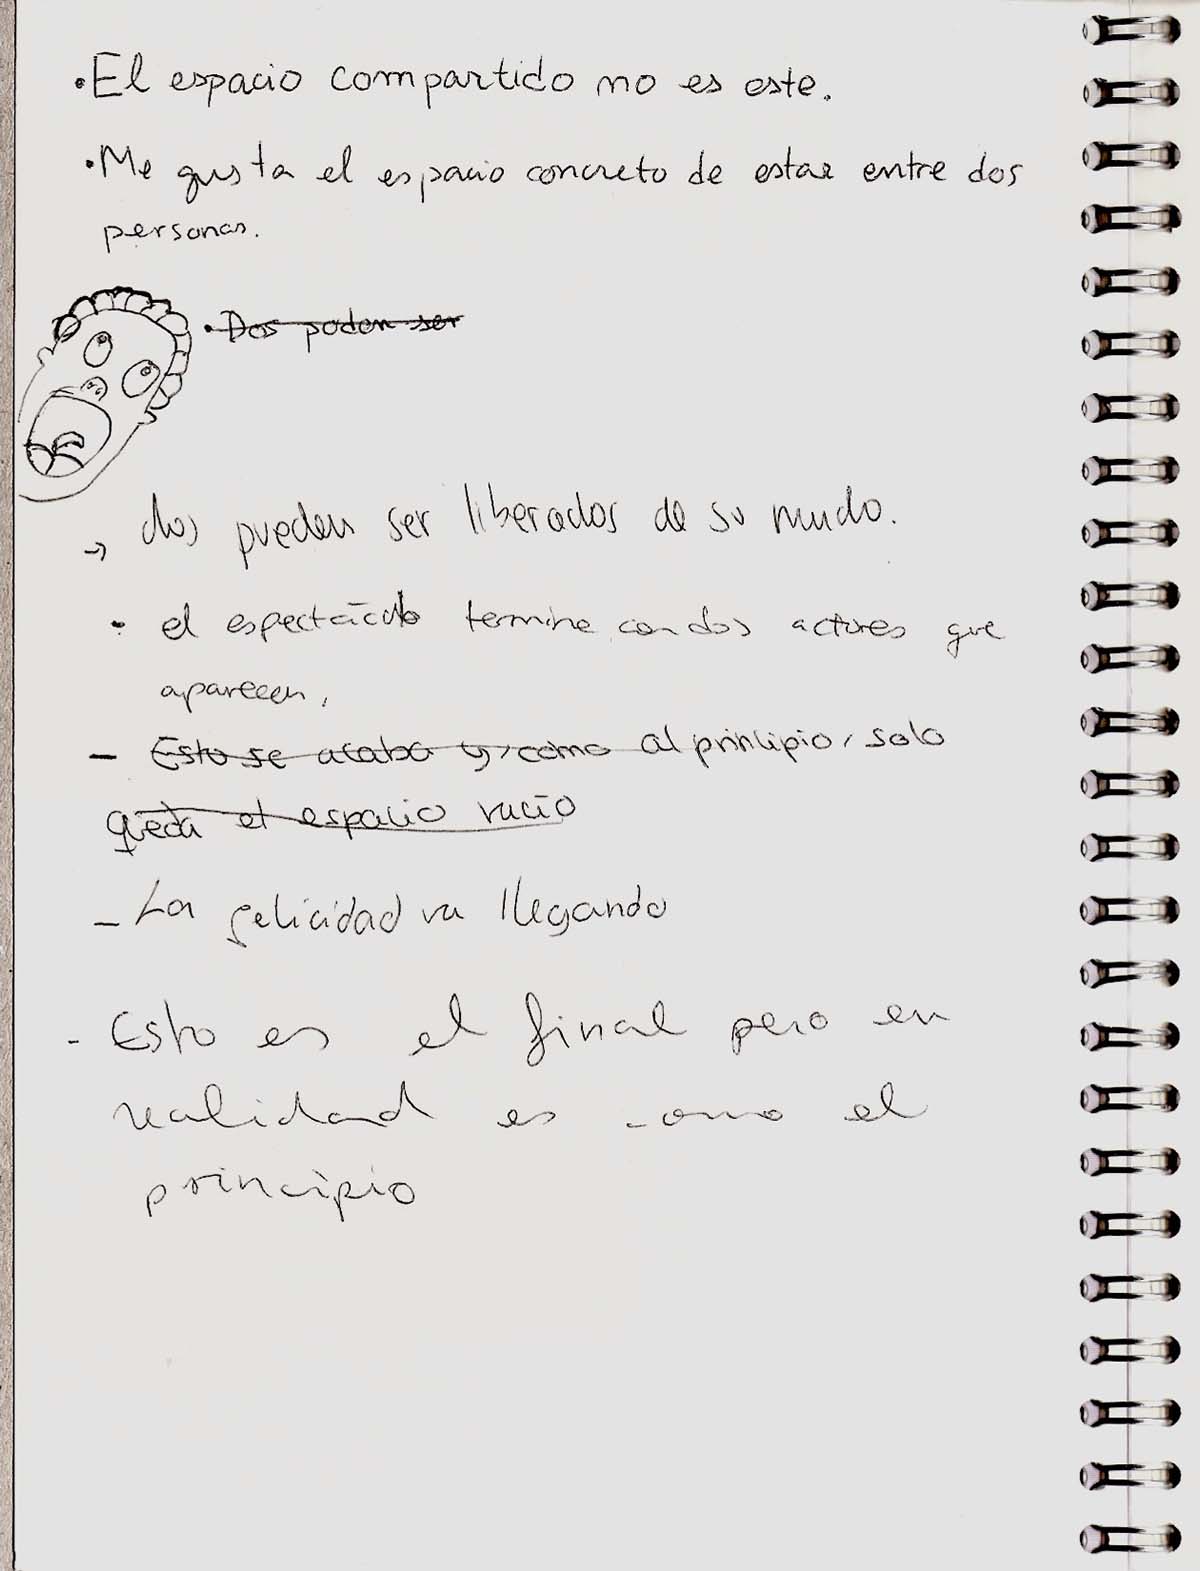 • El espacio compartido no es este.
• Me gusta el espacio concreto de estar entre dos
personas.
• Dos poden ser
→ dos pueden ser liberados de su mundo.
• el espectáculo termine con dos actores que
aparecen.
- Esto se acaba y, como al principio, solo
queda el espacio vacío
- La felicidad va llegando
- Esto es el final pero en
realidad es como el
principio